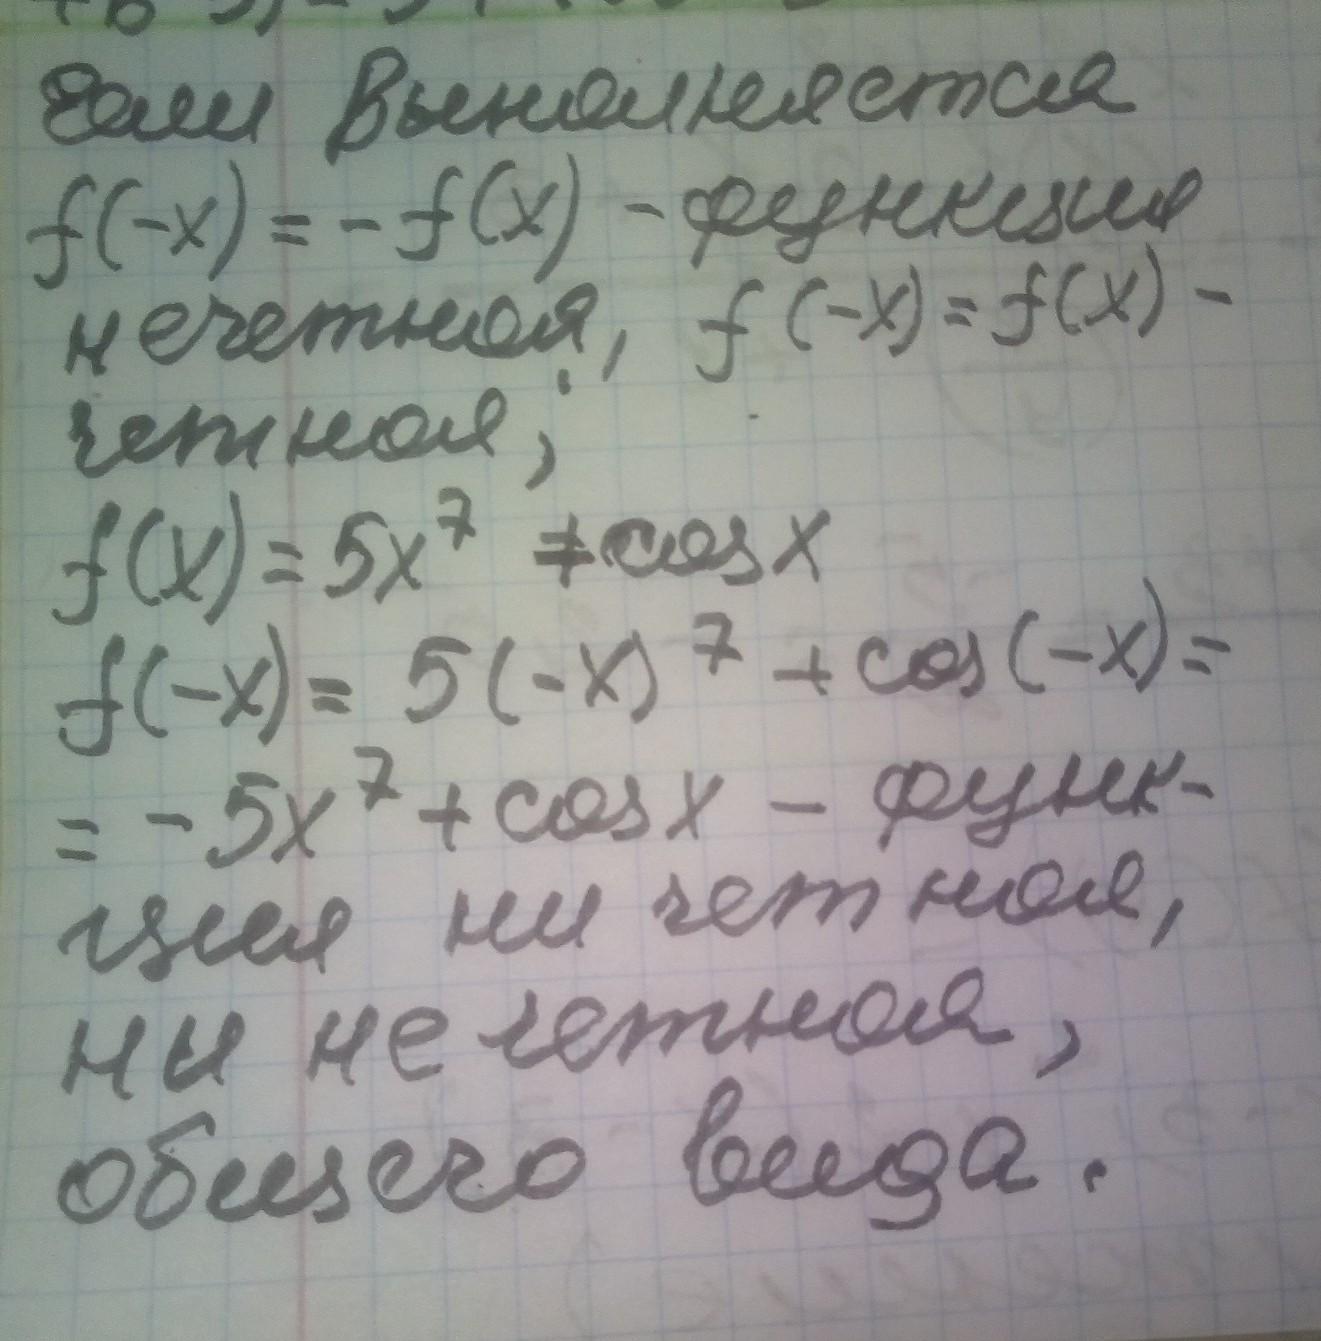 Если Выполняется
f(-x) = - f(x) - функция
нечетная, f(-x) = f(x) -
четная;
f(x) = 5x⁷ + cos x
f(-x) = 5(-x)⁷ + cos(-x) =
= -5x⁷ + cos x - функ-
ция ни четная,
ни нечетная,
общего вида.